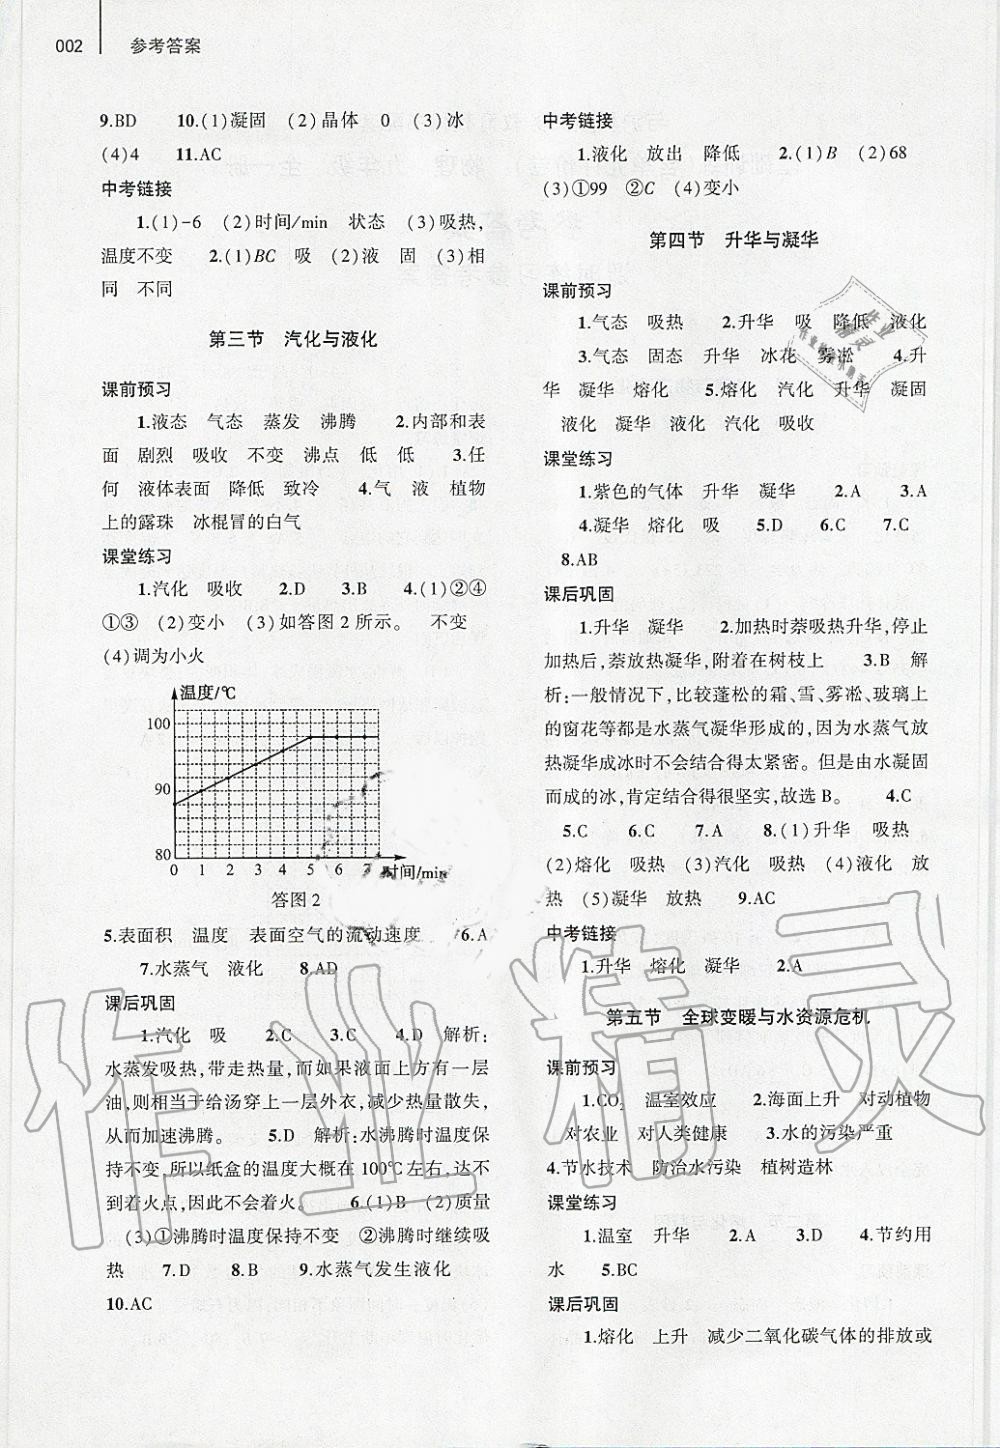 002 参考答案
9.BD 10.(1)凝固 (2)晶体 0 (3)冰
(4)4 11.AC
中考链接
1.(1)-6 (2)时间/min 状态 (3)吸热,
温度不变 2.(1)BC 吸 (2)液 固 (3)相
同 不同
第三节 汽化与液化
课前预习
1.液态 气态 蒸发 沸腾 2.内部和表
面 剧烈 吸收 不变 沸点 低 低 3.任
何 液体表面 降低 致冷 4.气 液 植物
上的露珠 冰棍冒的白气
课堂练习
1.汽化 吸收 2.D 3.B 4.(1)②④
①③ (2)变小 (3)如答图2所示。 不变
(4)调为小火
温度/℃
100
90
80
0 1 2 3 4 5 6 7 时间/min
答图2
5.表面积 温度 表面空气的流动速度 6.A
7.水蒸气 液化 8.AD
课后巩固
1.汽化 吸 2.C 3.C 4.D 解析:
水蒸发吸热,带走热量,而如果液面上方有一层
油,则相当于给汤穿上一层外衣,减少热量散失,
从而加速沸腾。 5.D 解析:水沸腾时温度保
持不变,所以纸盒的温度大概在100℃左右,达不
到着火点,因此不会着火。 6.(1)B (2)质量
(3)①沸腾时温度保持不变 ②沸腾时继续吸
热 7.D 8.B 9.水蒸气发生液化
10.AC
中考链接
1.液化 放出 降低 2.(1)B (2)68
(3)①99 ②C (4)变小
第四节 升华与凝华
课前预习
1.气态 吸热 2.升华 吸 降低 液化
3.气态 固态 升华 冰花 雾凇 4.升
华 凝华 熔化 5.熔化 汽化 升华 凝固
液化 凝华 液化 汽化 吸收
课堂练习
1.紫色的气体 升华 凝华 2.A 3.A
4.凝华 熔化 吸 5.D 6.C 7.C
8.AB
课后巩固
1.升华 凝华 2.加热时萘吸热升华,停止
加热后,萘放热凝华,附着在树枝上 3.B 解
析:一般情况下,比较蓬松的霜、雪、雾凇、玻璃上
的窗花等都是水蒸气凝华形成的,因为水蒸气放
热凝华成冰时不会结合得太紧密。但是由水凝固
而成的冰,肯定结合得很坚实,故选B。 4.C
5.C 6.C 7.A 8.(1)升华 吸热
(2)熔化 吸热 (3)汽化 吸热 (4)液化 放
热 (5)凝华 放热 9.AC
中考链接
1.升华 熔化 凝华 2.A
第五节 全球变暖与水资源危机
课前预习
1.CO₂ 温室效应 2.海面上升 对动植物
对农业 对人类健康 3.水的污染严重
4.节水技术 防治水污染 植树造林
课堂练习
1.温室 升华 2.A 3.D 4.节约用
水 5.BC
课后巩固
1.熔化 上升 减少二氧化碳气体的排放或
作业精灵